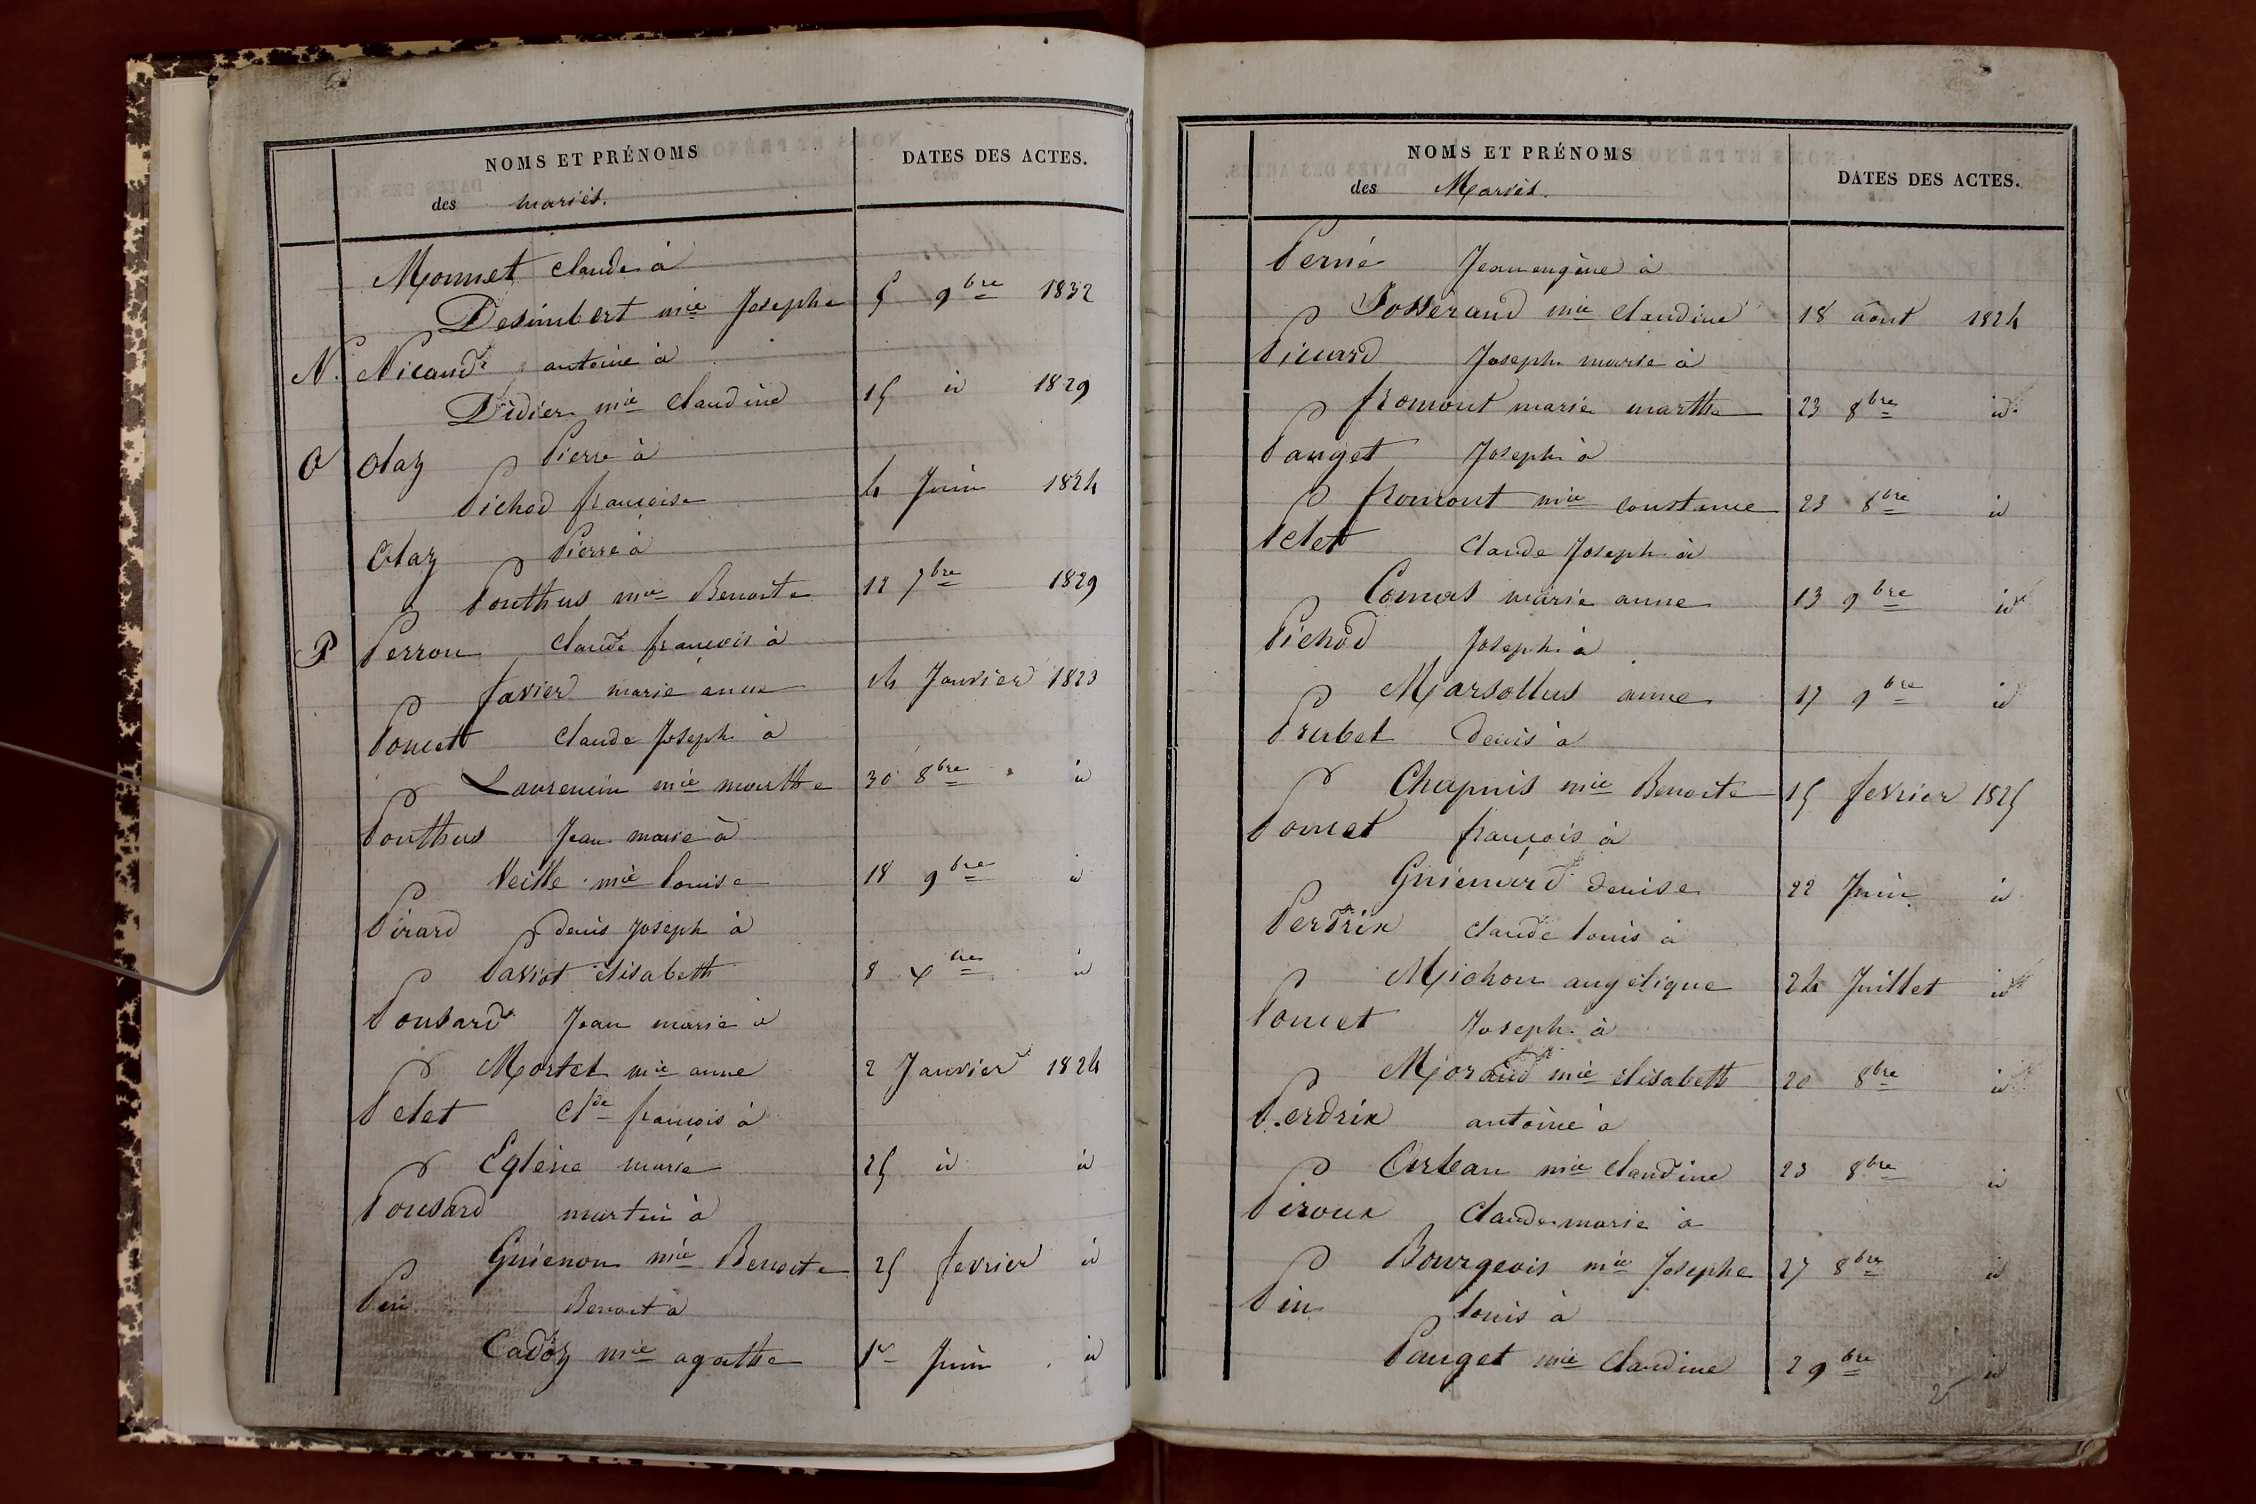 NOMS ET PRÉNOMS
des mariés.
DATES DES ACTES.
Monnet claude à
Desimbert mie Josephe 5 9bre 1832
N. Nicaud antoine à
Didier mie claudine 15 id 1829
O Olaz Pierre à
Pichod françoise 4 Juin 1824
Olaz Pierre à
Pouthus mie Benoite 12 7bre 1829
P Perron claude françois à
favier marie anne 14 Janvier 1823
Poncet claude Joseph à
Laurencin mie marthe 30 8bre id
Pouthus Jean marie à
Veille mie louise 18 9bre id
Pirard denis Joseph à
Parrot élisabeth 8 xbre id
Ponsard Jean marie à
Mortel mie anne 2 Janvier 1824
Pelet Clde françois à
Egléne marie 25 id id
Ponsard martin à
Guienon mie Benoite 25 fevrier id
Pin Benoit à
Cadoz mie agathe 1er Juin id
NOMS ET PRÉNOMS
des Mariés.
DATES DES ACTES.
Perné Jean eugène à
Josserand mie claudine 18 août 1824
Picard Joseph marie à
fromont marie marthe 23 8bre id.
Pauget Joseph à
fromont mie constance 23 8bre id
Pelet claude Joseph à
Comas marie anne 13 9bre id
Pichod Joseph à
Marsollus anne 17 9bre id
Prubet denis à
Chapuis mie Benoite 15 fevrier 1825
Poncet françois à
Guienard denise 22 Juin id
Perdrix claude louis à
Michon angélique 24 Juillet id
Poncet Joseph à
Morand mie élisabeth 20 8bre id
Perdrix antoine à
Curban mie claudine 23 8bre id
Piroux claude marie à
Bourgeois mie Josephe 27 8bre id
Pin louis à
Pauget mie claudine 2 9bre id